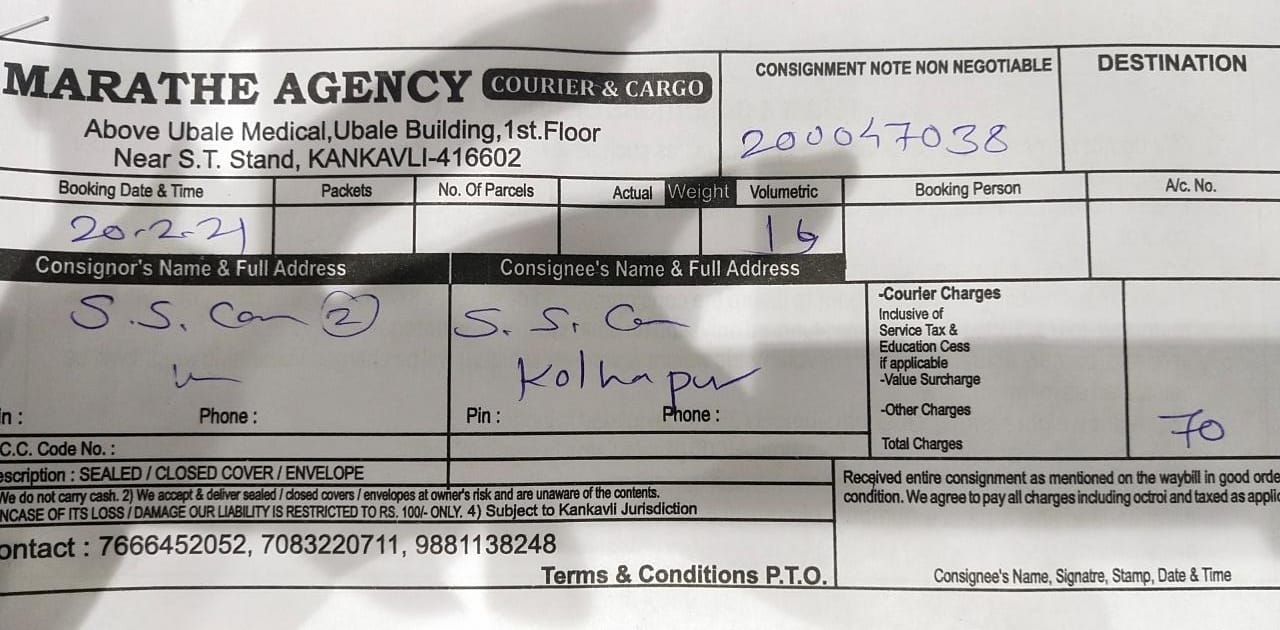 MARATHE AGENCY COURIER & CARGO
Above Ubale Medical,Ubale Building,1st.Floor
Near S.T. Stand, KANKAVLI-416602
CONSIGNMENT NOTE NON NEGOTIABLE
200047038
DESTINATION
Booking Date & Time Packets No. Of Parcels Actual Weight Volumetric Booking Person A/c. No.
20-2-21
Consignor's Name & Full Address Consignee's Name & Full Address
S.S. ②
S. S.
Kolhapur
in : Phone : Pin : Phone :
-Courier Charges
Inclusive of
Service Tax &
Education Cess
if applicable
-Value Surcharge
-Other Charges
Total Charges 70
C.C. Code No. :
escription : SEALED / CLOSED COVER / ENVELOPE
We do not carry cash. 2) We accept & deliver sealed / closed covers / envelopes at owner's risk and are unaware of the contents.
NCASE OF ITS LOSS / DAMAGE OUR LIABILITY IS RESTRICTED TO RS. 100/- ONLY. 4) Subject to Kankavli Jurisdiction
ontact : 7666452052, 7083220711, 9881138248
Terms & Conditions P.T.O.
Received entire consignment as mentioned on the waybill in good orde
condition. We agree to pay all charges including octroi and taxed as applic
Consignee's Name, Signatre, Stamp, Date & Time